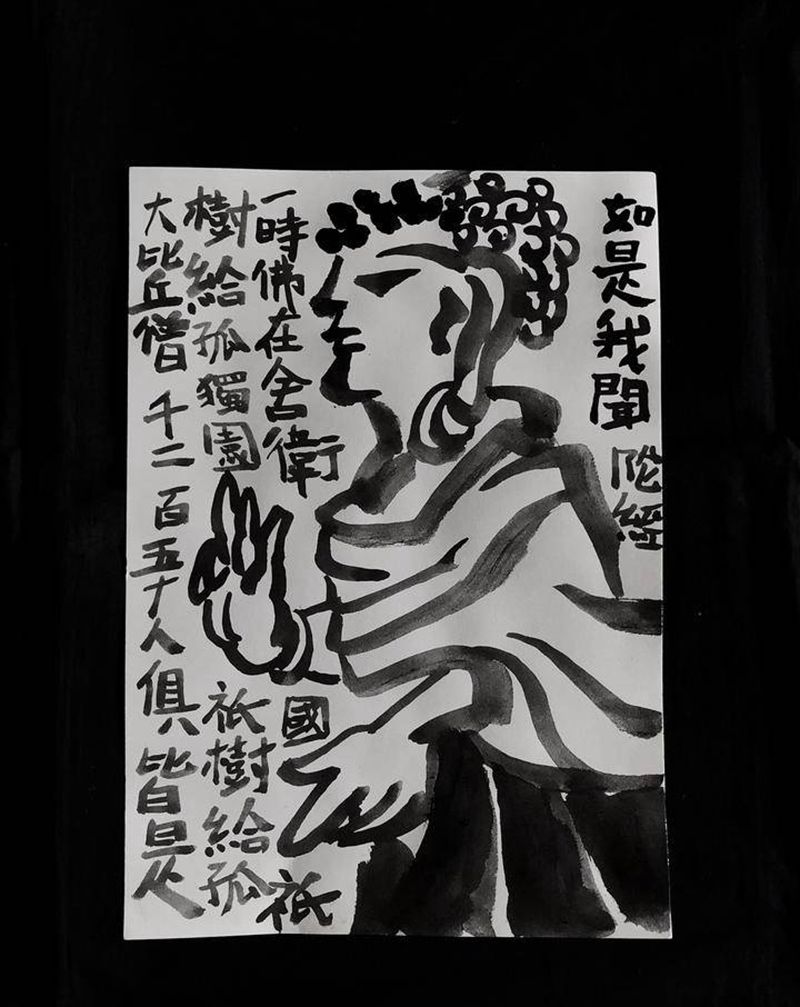 如是我聞
陀經
一時佛在舍衛
國
祇
樹給孤獨園
祇樹給孤
大比丘僧千二百五十人俱皆是